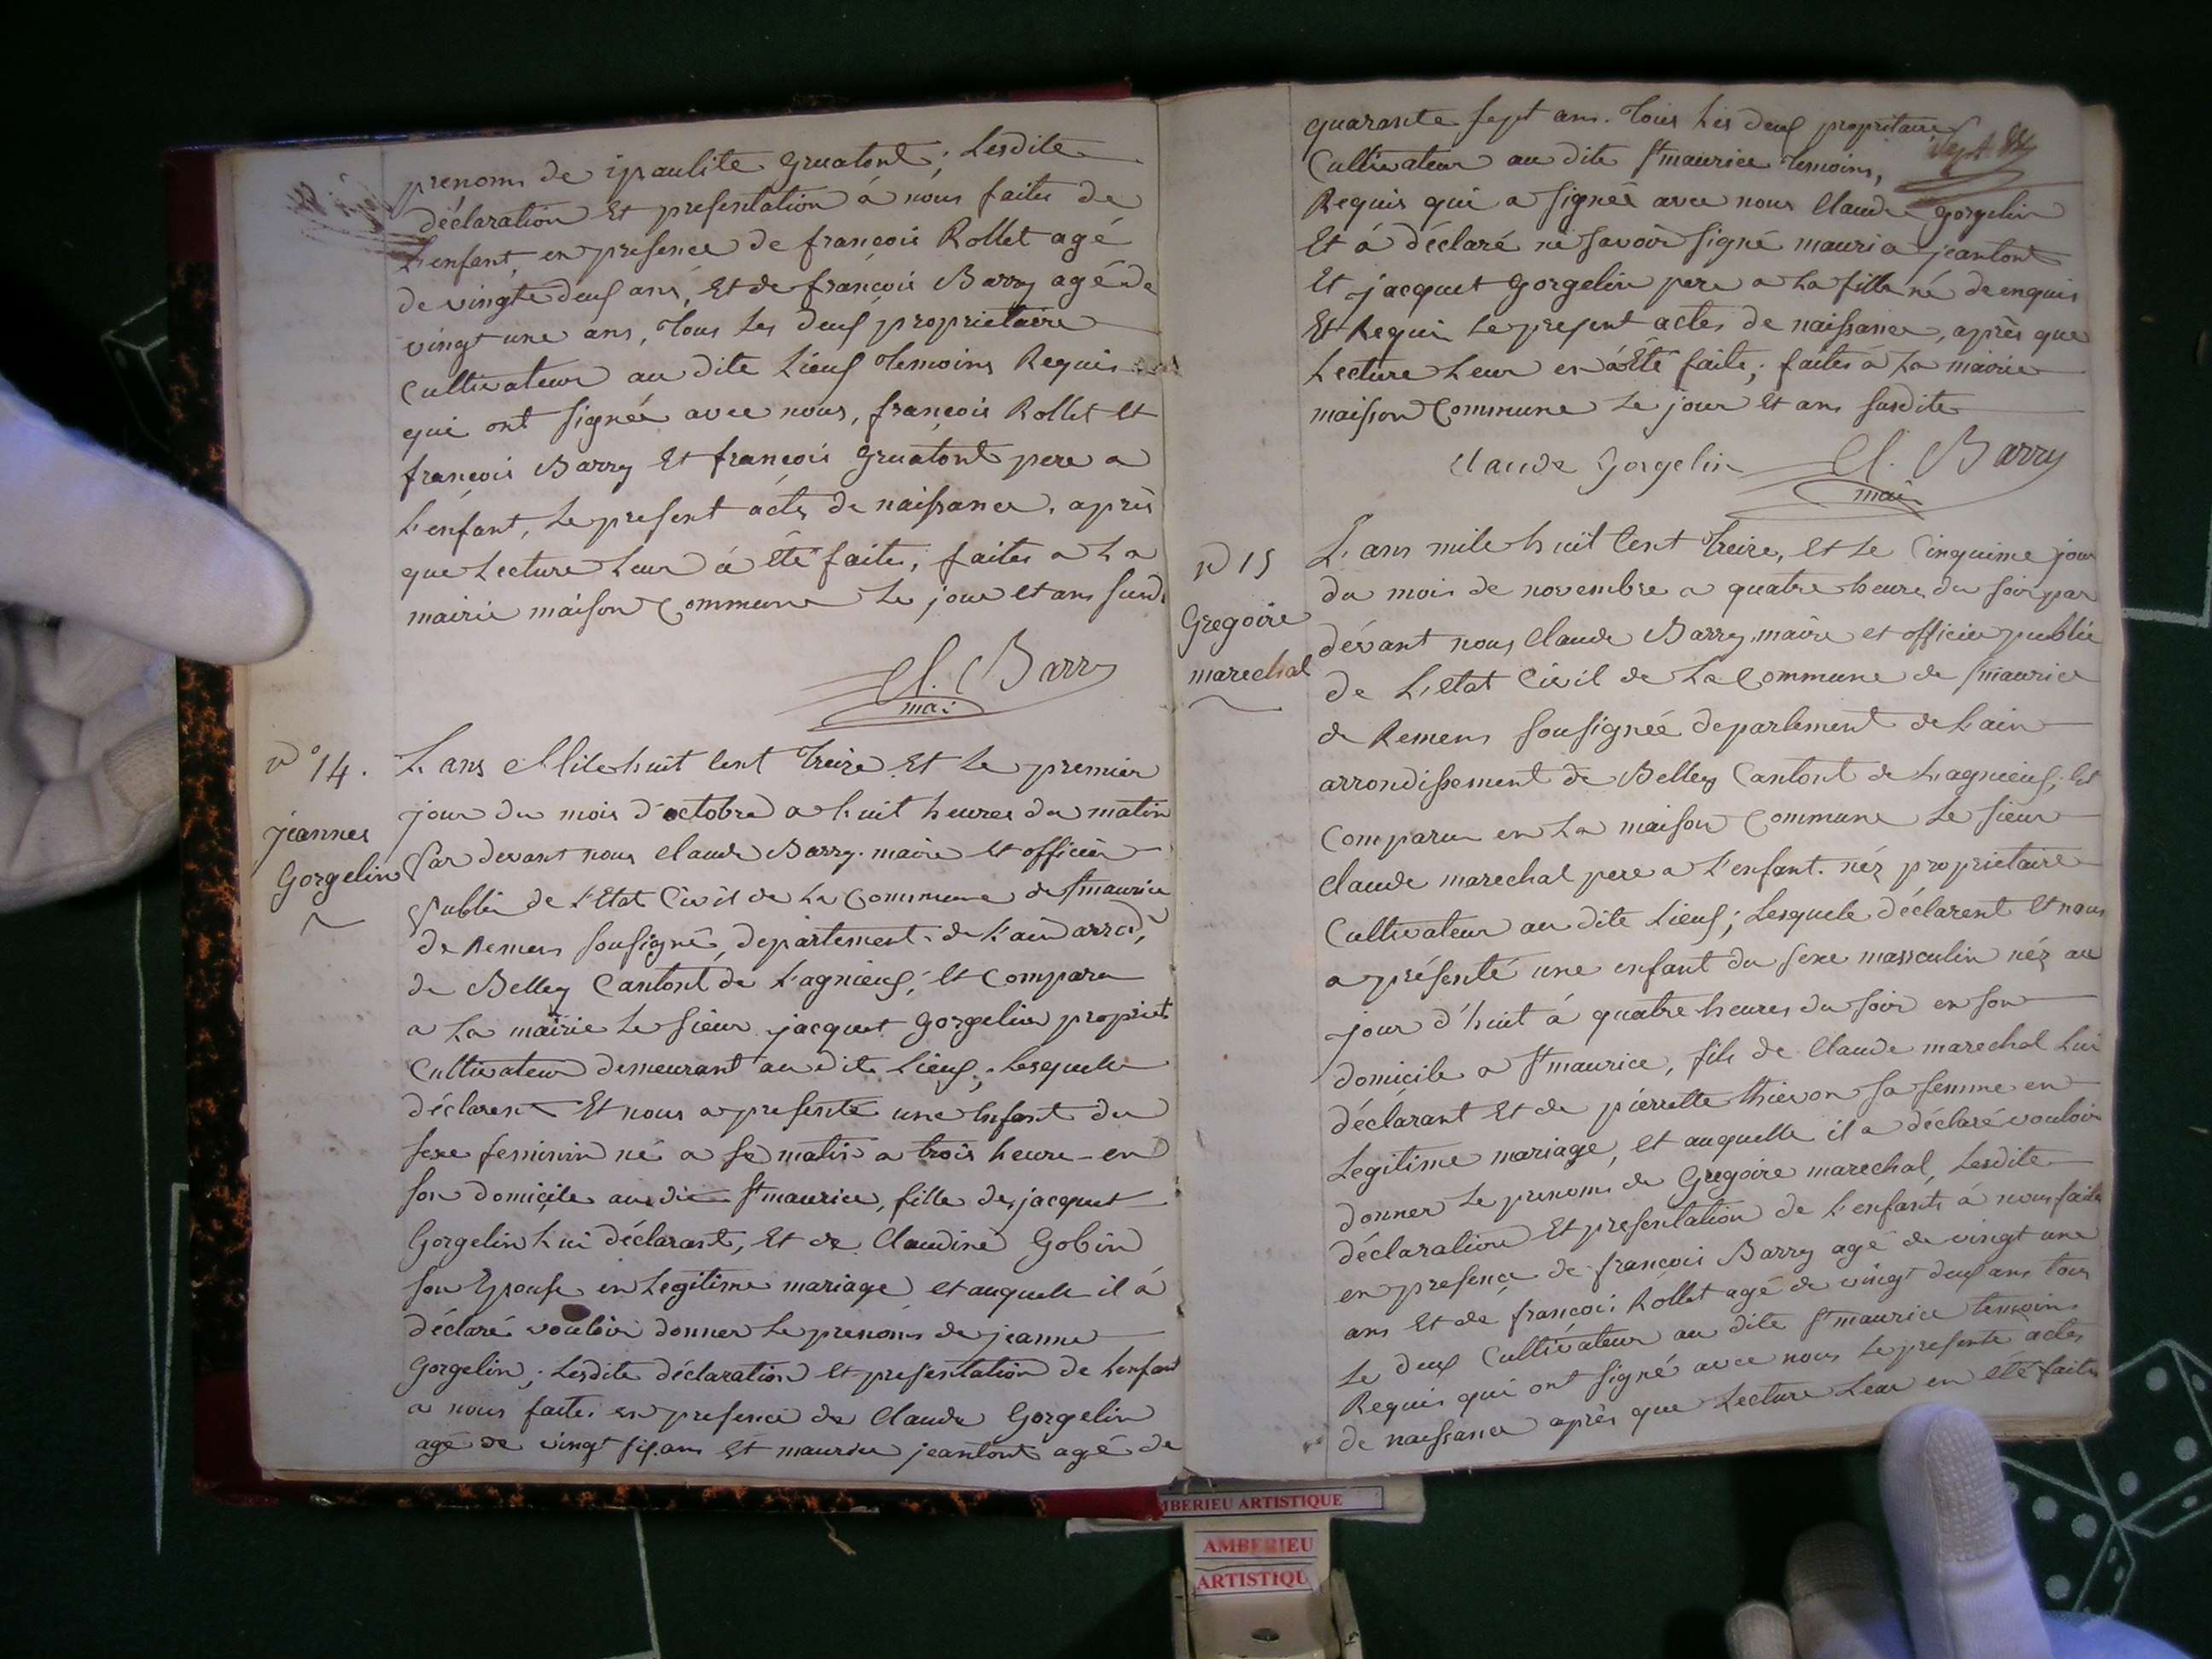 prenoms de ipaulite gruatont; Lesdite
déclaration Et presentation á nous faites de
L'enfant, en presence de françois Rollet agé
de vingte deux ans, Et de françois Barry agé de
vingt une ans, tous Les deux proprietaire
Cultivateur au dite Lieux temoins Requis
qui ont signéé avec nous, françois Rollet et
françois Barry Et françois gruatont pere a
L'enfant, Le present actes de naissance, après
que Lecture Leur á été faite; faites a La
mairie maison Commune Le jour et ans susd.
Cl. Barry
mai
n° 14.
jeannes
Gorgelin
L'ans Mile huit Cent treize Et Le premier
jour du mois d'octobre a huit heures du matin
Par devant nous Claude Barry maire et officier
Public de L'Etat Civil de La Commune de St maurice
de Remens sousigné, departement de L'ain arrd,
de Belley Cantont de Lagnieux; Et Comparu
a La mairie Le sieur jacquet gorgelin propriet
Cultivateur demeurant au dite Lieux; Lesquele
déclarent Et nous a presenté une Enfant du
sexe feminin né a se matin a trois heure en
son domicile au dit St maurice, fille de jacquet
Gorgelin Lui déclarant, Et de Claudine Gobin
son Epouse en Legitime mariage et auquele il á
déclaré vouloir donner Le prenoms de jeanne
Gorgelin; Lesdite déclaration et presentation de Lenfant
a nous faites en presence de Claude Gorgelin
agé de vingt six ans Et maurice jeantont agé de
quarante sept ans. tous Les deux proprietaire
Cultivateur au dite St maurice temoins,
Requis qui a signéé avec nous Claude gorgelin
Et á déclaré ne savoir signé maurice jeantont
Et jacquet Gorgelin pere a La fille né de enquis
Et Requi Le present actes de naissance, après que
Lecture Leur en á Eté faite; faites á La mairie
maison Commune Le jour Et ans susdite
Claude gorgelin Cl. Barry
mai
n° 15
Gregoire
marechal
L'ans mile huit Cent treize, et Le Cinquime jour
du mois de novembre a quatre heures du soir par
dévant nous Claude Barry maire et officier public
de L'etat Civil de La Commune de St maurice
de Remens sousignéé departement de L'ain
arrondissement de Belley Cantont de Lagnieux; Et
Comparu en La maison Commune Le sieur
Claude marechal pere a L'enfant néz proprietaire
Cultivateur au dite Lieux; Lesquele déclarent et nous
a présenté une enfant du sexe masculin néz au
jour d'huit á quatre heures du soir en son
domicile a St maurice, fils de Claude marechal Lui
déclarant et de pierrette thievon sa femme en
Legitime mariage, et auquelle il a déclaré vouloir
donner Le prenoms de Gregoire marechal, Lesdite
déclaration Et presentation de L'enfants á nous faite
en presence de françois Barry agé de vingt une
ans Et de françois Rollet agé de vingt deux ans tous
Le deux Cultivateur au dite St maurice temoins
Requis qui ont signé avec nous Le presente actes
de naissance après que Lecture Leur en été faites
AMBERIEU ARTISTIQUE
AMBERIEU
ARTISTIQU